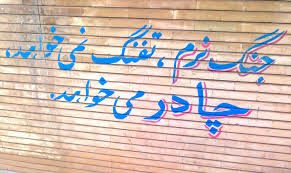 جنگ نرم ، تفنگ نمی خواهد.
چادر می خواهد.